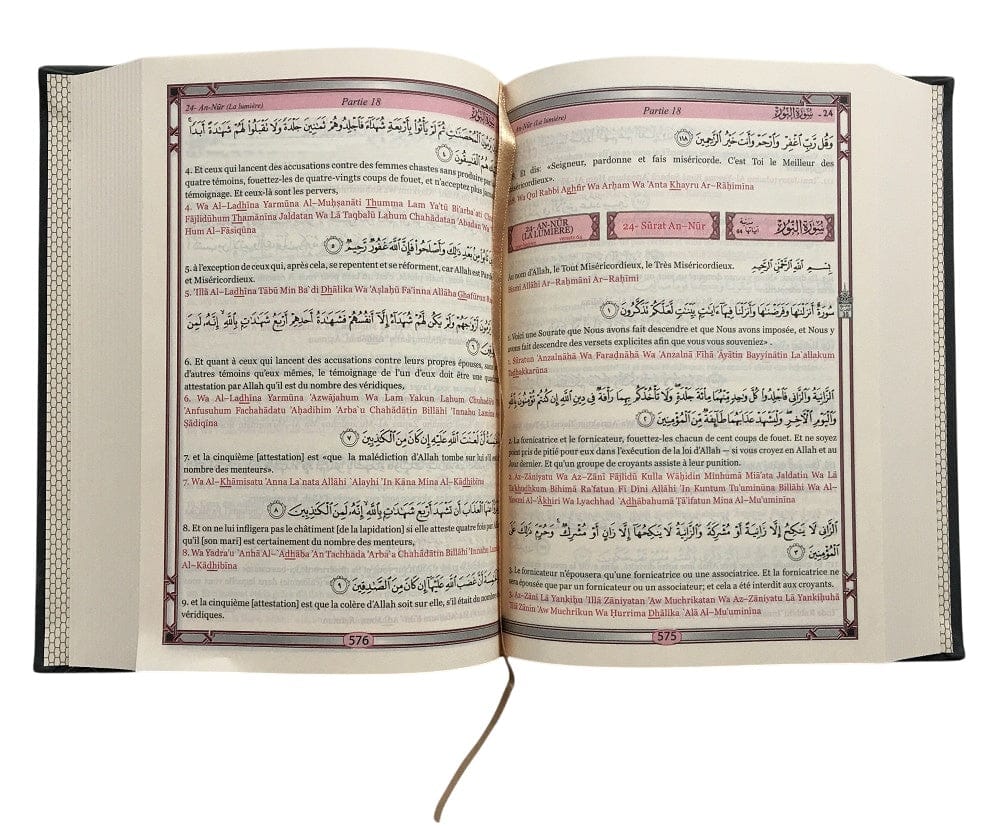 An-Nūr (La lumière) Partie 18 سُورَةُ النُّورِ - 24
وَقُل رَّبِّ ٱغْفِرْ وَٱرْحَمْ وَأَنتَ خَيْرُ ٱلرَّٰحِمِينَ ١١٨
Et dis: «Seigneur, pardonne et fais miséricorde. C'est Toi le Meilleur des
miséricordieux».
Wa Qul Rabbi Aghfir Wa Arḥam Wa 'Anta Khayru Ar–Rāḥimīna
24- AN-NŪR
(LA LUMIÈRE)
24- Sūrat An–Nūr
سُورَةُ النُّورِ
Au nom d'Allah, le Tout Miséricordieux, le Très Miséricordieux. بِسْمِ ٱللَّهِ ٱلرَّحْمَٰنِ ٱلرَّحِيمِ
Bismi Allāhi Ar–Raḥmāni Ar–Raḥīmi
سُورَةٌ أَنزَلْنَٰهَا وَفَرَضْنَٰهَا وَأَنزَلْنَا فِيهَآ ءَايَٰتٍۭ بَيِّنَٰتٍ لَّعَلَّكُمْ تَذَكَّرُونَ ١
1. Voici une Sourate que Nous avons fait descendre et que Nous avons imposée, et Nous y
avons fait descendre des versets explicites afin que vous vous souveniez» .
1. Sūratun 'Anzalnāhā Wa Faraḍnāhā Wa 'Anzalnā Fīhā 'Āyātin Bayyinātin La`allakum
Tadhakkarūna
ٱلزَّانِيَةُ وَٱلزَّانِى فَٱجْلِدُوا۟ كُلَّ وَٰحِدٍ مِّنْهُمَا مِا۟ئَةَ جَلْدَةٍ وَلَا تَأْخُذْكُم بِهِمَا رَأْفَةٌ فِى دِينِ ٱللَّهِ إِن كُنتُمْ تُؤْمِنُونَ بِٱللَّهِ
وَٱلْيَوْمِ ٱلْءَاخِرِ وَلْيَشْهَدْ عَذَابَهُمَا طَآئِفَةٌ مِّنَ ٱلْمُؤْمِنِينَ ٢
2. La fornicatrice et le fornicateur, fouettez-les chacun de cent coups de fouet. Et ne soyez
point pris de pitié pour eux dans l'exécution de la loi d'Allah – si vous croyez en Allah et au
Jour dernier. Et qu'un groupe de croyants assiste à leur punition.
2. Az–Zāniyatu Wa Az–Zānī Fājlidū Kulla Wāḥidin Minhumā Miā'ata Jaldatin Wa Lā
Ta'khudhkum Bihimā Ra'fatun Fī Dīni Allāhi 'In Kuntum Tu'uminūna Billāhi Wa Al–
Yawmi Al–'Ākhiri Wa Lyachhad `Adhābahumā Ṭā'ifatun Mina Al–Mu'uminīna
ٱلزَّانِى لَا يَنكِحُ إِلَّا زَانِيَةً أَوْ مُشْرِكَةً وَٱلزَّانِيَةُ لَا يَنكِحُهَآ إِلَّا زَانٍ أَوْ مُشْرِكٌ وَحُرِّمَ ذَٰلِكَ عَلَى
ٱلْمُؤْمِنِينَ ٣
3. Le fornicateur n'épousera qu'une fornicatrice ou une associatrice. Et la fornicatrice ne
sera épousée que par un fornicateur ou un associateur; et cela a été interdit aux croyants.
3. Az–Zānī Lā Yankiḥu 'Illā Zāniyatan 'Aw Muchrikatan Wa Az–Zāniyatu Lā Yankiḥuhā
'Illā Zānin 'Aw Muchrikun Wa Ḥurrima Dhālika `Alá Al–Mu'uminīna
575
24- An-Nūr (La lumière) Partie 18
يَرْمُونَ ٱلْمُحْصَنَٰتِ ثُمَّ لَمْ يَأْتُوا۟ بِأَرْبَعَةِ شُهَدَآءَ فَٱجْلِدُوهُمْ ثَمَٰنِينَ جَلْدَةً وَلَا تَقْبَلُوا۟ لَهُمْ شَهَٰدَةً أَبَدًا
هُمُ ٱلْفَٰسِقُونَ ٤
4. Et ceux qui lancent des accusations contre des femmes chastes sans produire par
quatre témoins, fouettez-les de quatre-vingts coups de fouet, et n'acceptez plus jamais
témoignage. Et ceux-là sont les pervers,
4. Wa Al–Ladhīna Yarmūna Al–Muḥṣanāti Thumma Lam Ya'tū Bi'arba`ati
Fājlidūhum Thamānīna Jaldatan Wa Lā Taqbalū Lahum Chahādatan 'Abadan Wa
Hum Al–Fāsiqūna
تَابُوا۟ مِنۢ بَعْدِ ذَٰلِكَ وَأَصْلَحُوا۟ فَإِنَّ ٱللَّهَ غَفُورٌ رَّحِيمٌ ٥
5. à l'exception de ceux qui, après cela, se repentent et se réforment, car Allah est
et Miséricordieux.
5. 'Illā Al–Ladhīna Tābū Min Ba`di Dhālika Wa 'Aṣlaḥū Fa'inna Allāha Ghafūrun
يَرْمُونَ أَزْوَٰجَهُمْ وَلَمْ يَكُن لَّهُمْ شُهَدَآءُ إِلَّآ أَنفُسُهُمْ فَشَهَٰدَةُ أَحَدِهِمْ أَرْبَعُ شَهَٰدَٰتٍۭ بِٱللَّهِ إِنَّهُۥ لَمِنَ
٦
6. Et quant à ceux qui lancent des accusations contre leurs propres épouses, sans
d'autres témoins qu'eux mêmes, le témoignage de l'un d'eux doit être une
attestation par Allah qu'il est du nombre des véridiques,
6. Wa Al–Ladhīna Yarmūna 'Azwājahum Wa Lam Yakun Lahum
'Anfusuhum Fachahādatu 'Aḥadihim 'Arba`u Chahādātin Billāhi 'Innahu Lamina
Ṣādiqīna
أَنَّ لَعْنَتَ ٱللَّهِ عَلَيْهِ إِن كَانَ مِنَ ٱلْكَٰذِبِينَ ٧
7. et la cinquième [attestation] est «que la malédiction d'Allah tombe sur lui s'il est
nombre des menteurs».
7. Wa Al–Khāmisatu 'Anna La`nata Allāhi `Alayhi 'In Kāna Mina Al–Kādhibīna
عَنْهَا ٱلْعَذَابَ أَن تَشْهَدَ أَرْبَعَ شَهَٰدَٰتٍۭ بِٱللَّهِ إِنَّهُۥ لَمِنَ ٱلْكَٰذِبِينَ ٨
8. Et on ne lui infligera pas le châtiment [de la lapidation] si elle atteste quatre fois par
qu'il [son mari] est certainement du nombre des menteurs,
8. Wa Yadra'u `Anhā Al–`Adhāba 'An Tachhada 'Arba`a Chahādātin Billāhi 'Innahu
Al–Kādhibīna
أَنَّ غَضَبَ ٱللَّهِ عَلَيْهَآ إِن كَانَ مِنَ ٱلصَّٰدِقِينَ ٩
9. et la cinquième [attestation] est que la colère d'Allah soit sur elle, s'il était du nombre
véridiques.
576